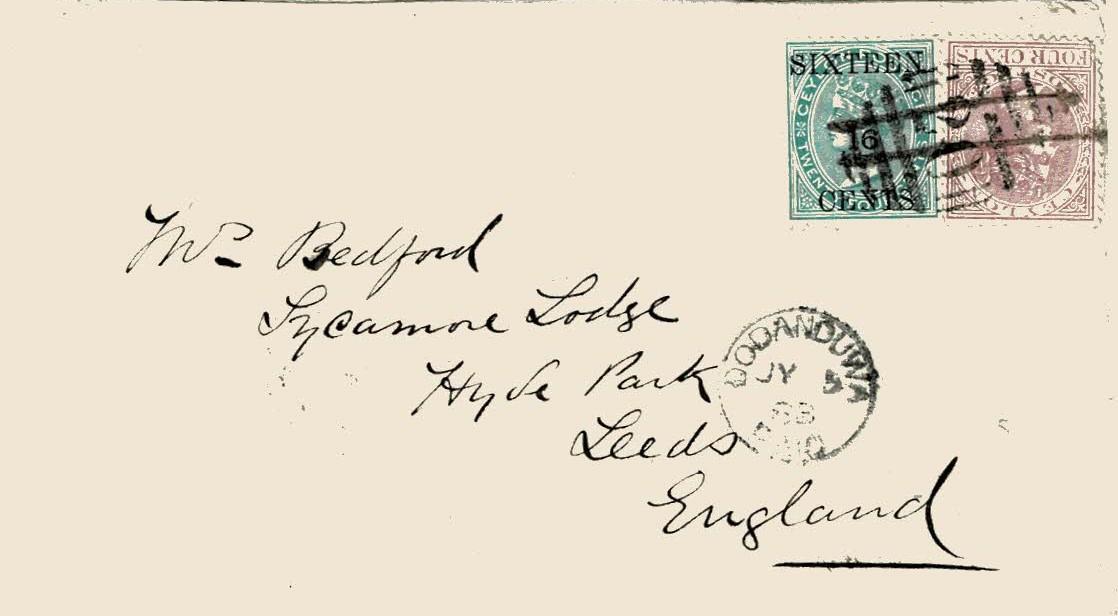 SIXTEEN
16
CENTS
FOUR CENTS
Mrs Bedford
Sycamore Lodge
Hyde Park
Leeds
England
DODANDUWA
JY 5